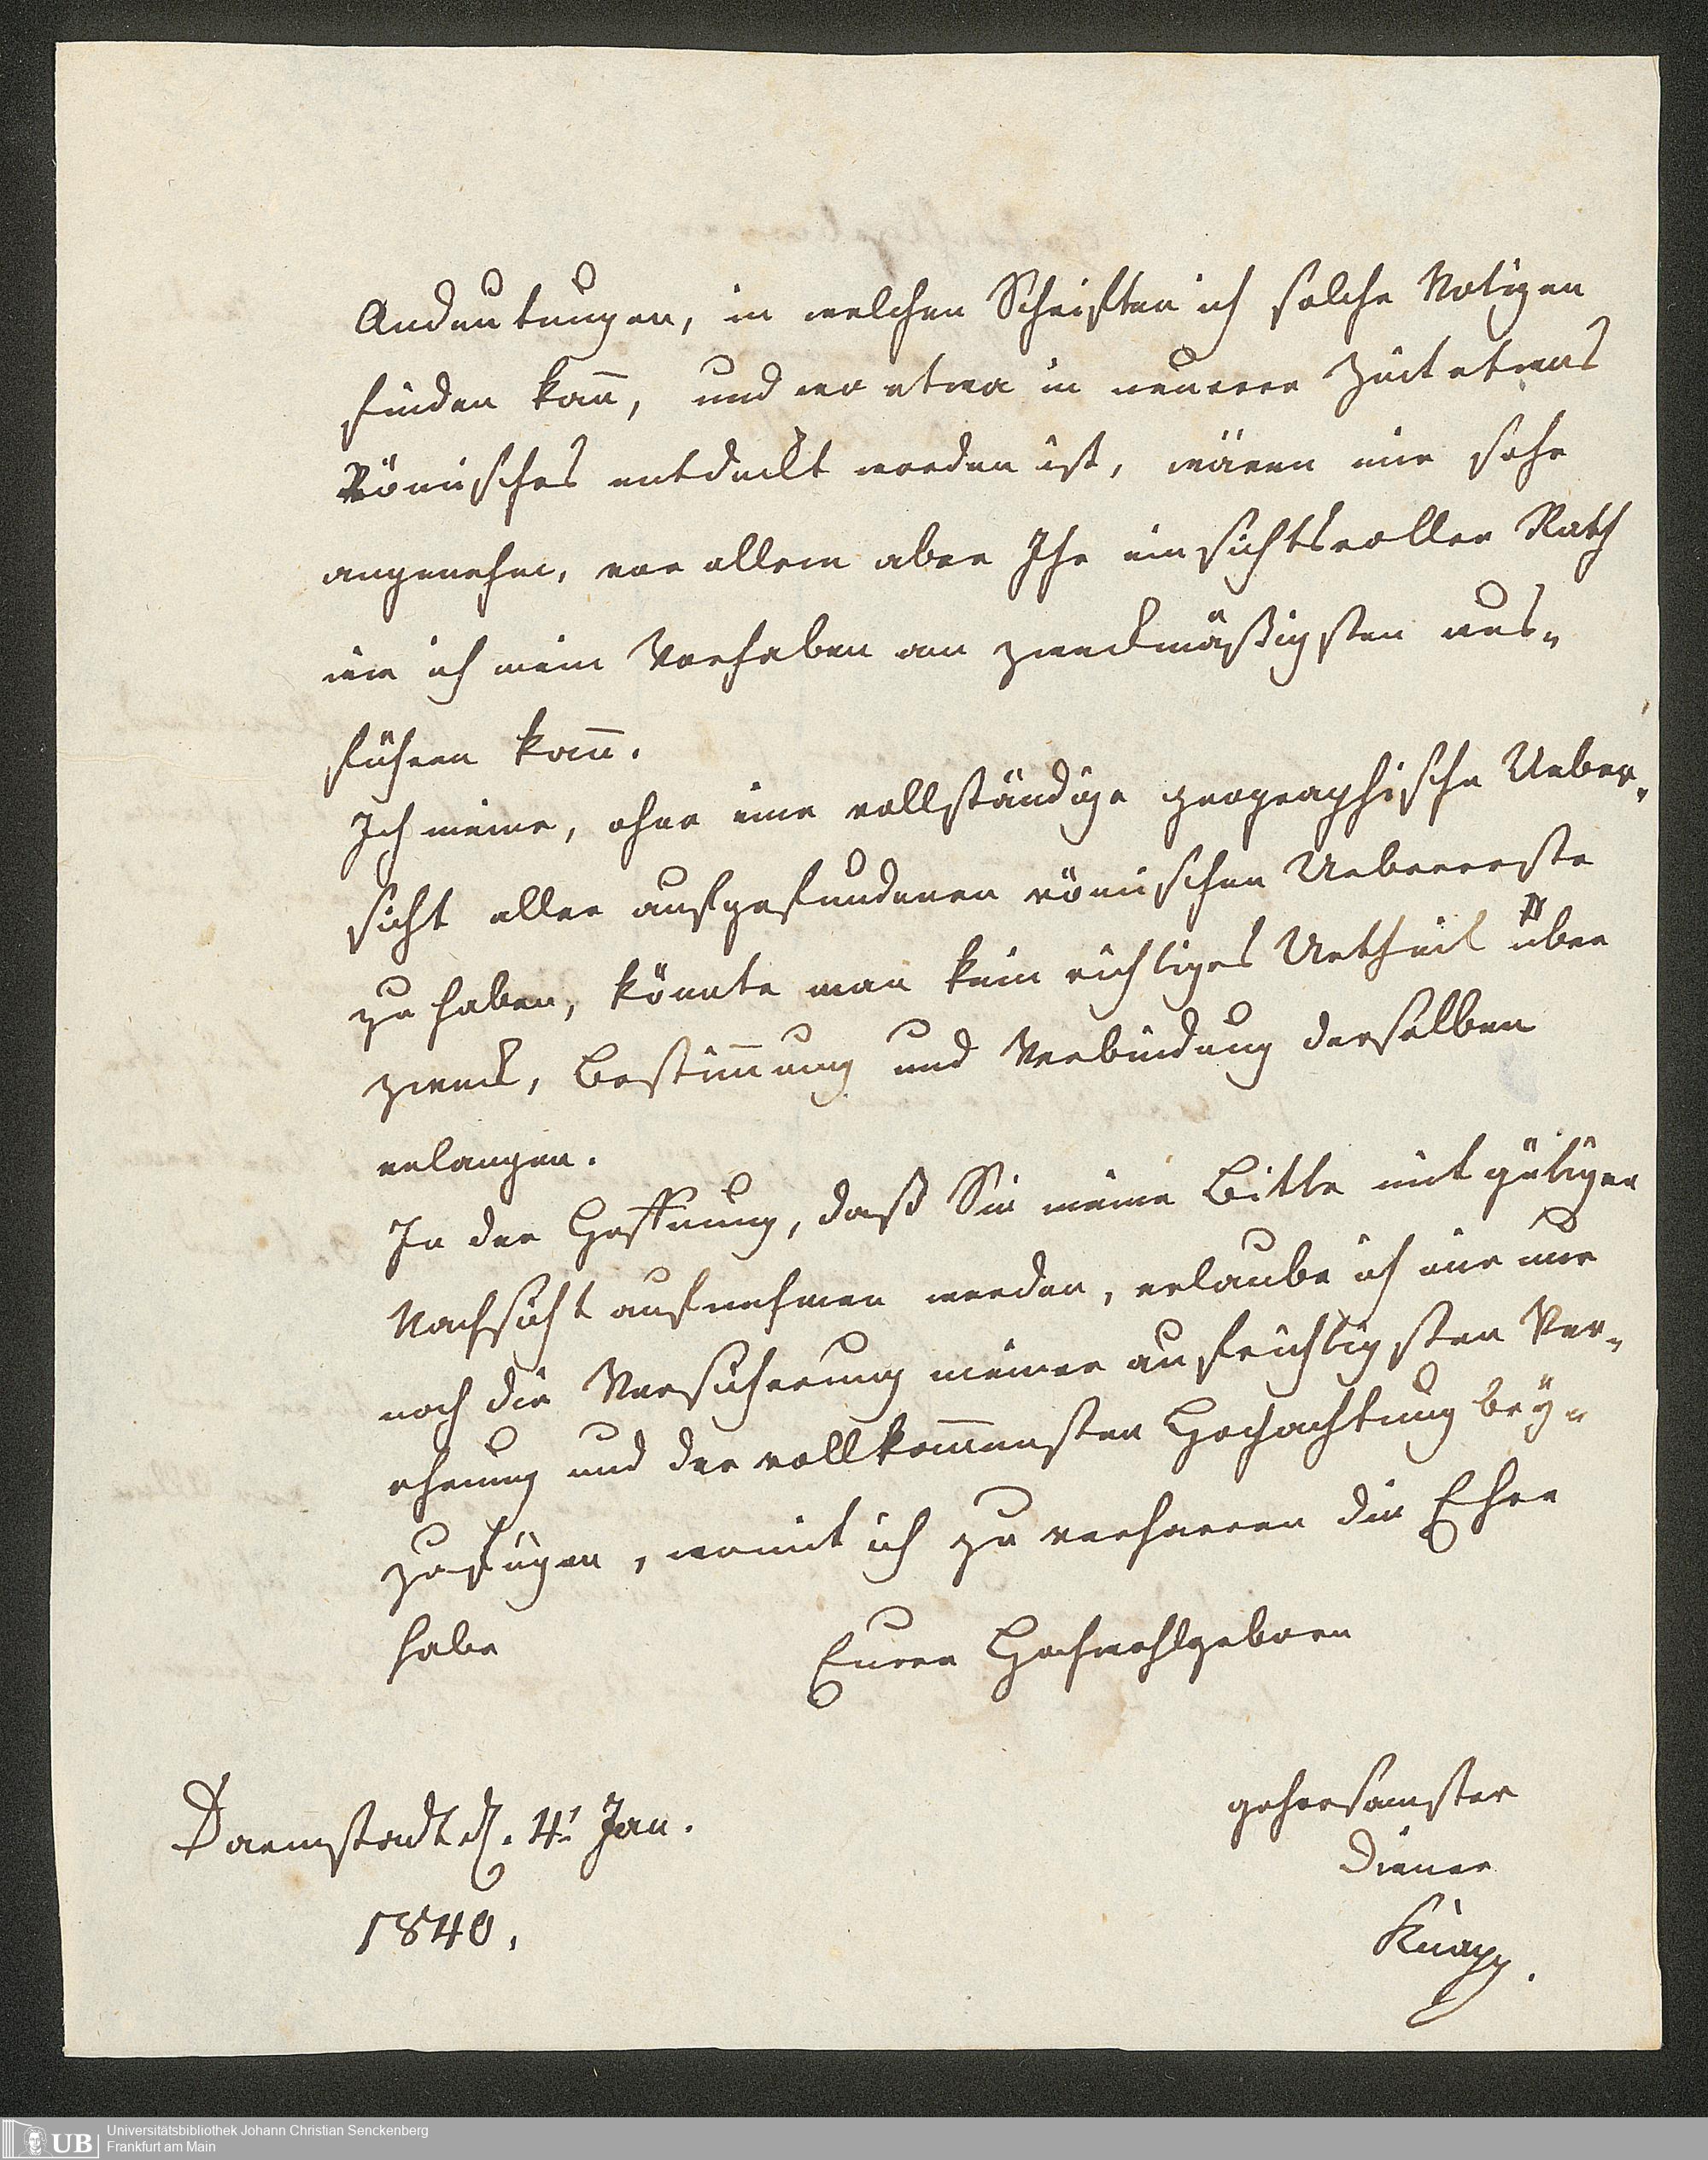 Andeutungen, in welchen Schriften ich solche Notizen
finden kan̄, und wo etwa in neuerer Zeit etwas
Römisches entdeckt worden ist, wären mir sehr
angenehm, vor allem aber Ihr einsichtsvoller Rath
wie ich mein Vorhaben am zweckmäßigsten aus-
führen kan̄.
Ich meine, ohne eine vollständige geographische Ueber-
sicht aller aufgefundenen römischen Ueberreste
zu haben, könnte man kein richtiges Urtheil über
Zweck, Bestim̄ung und Verbindung derselben
erlangen.
In der Hoffnung, daß Sie meine Bitte mit gütiger
Nachsicht aufnehmen werden, erlaube ich mir nur
noch die Versicherung meiner aufrichtigsten Ver-
ehrung und der vollkom̄ensten Hochachtung bey-
zufügen, womit ich zu verharren die Ehre
habe
Eurer Hochwohlgeborn
gehorsamster
Diener
Knapp.
Darmstadt d. 4t Jan.
1840.
UB
Universitätsbibliothek Johann Christian Senckenberg
Frankfurt am Main